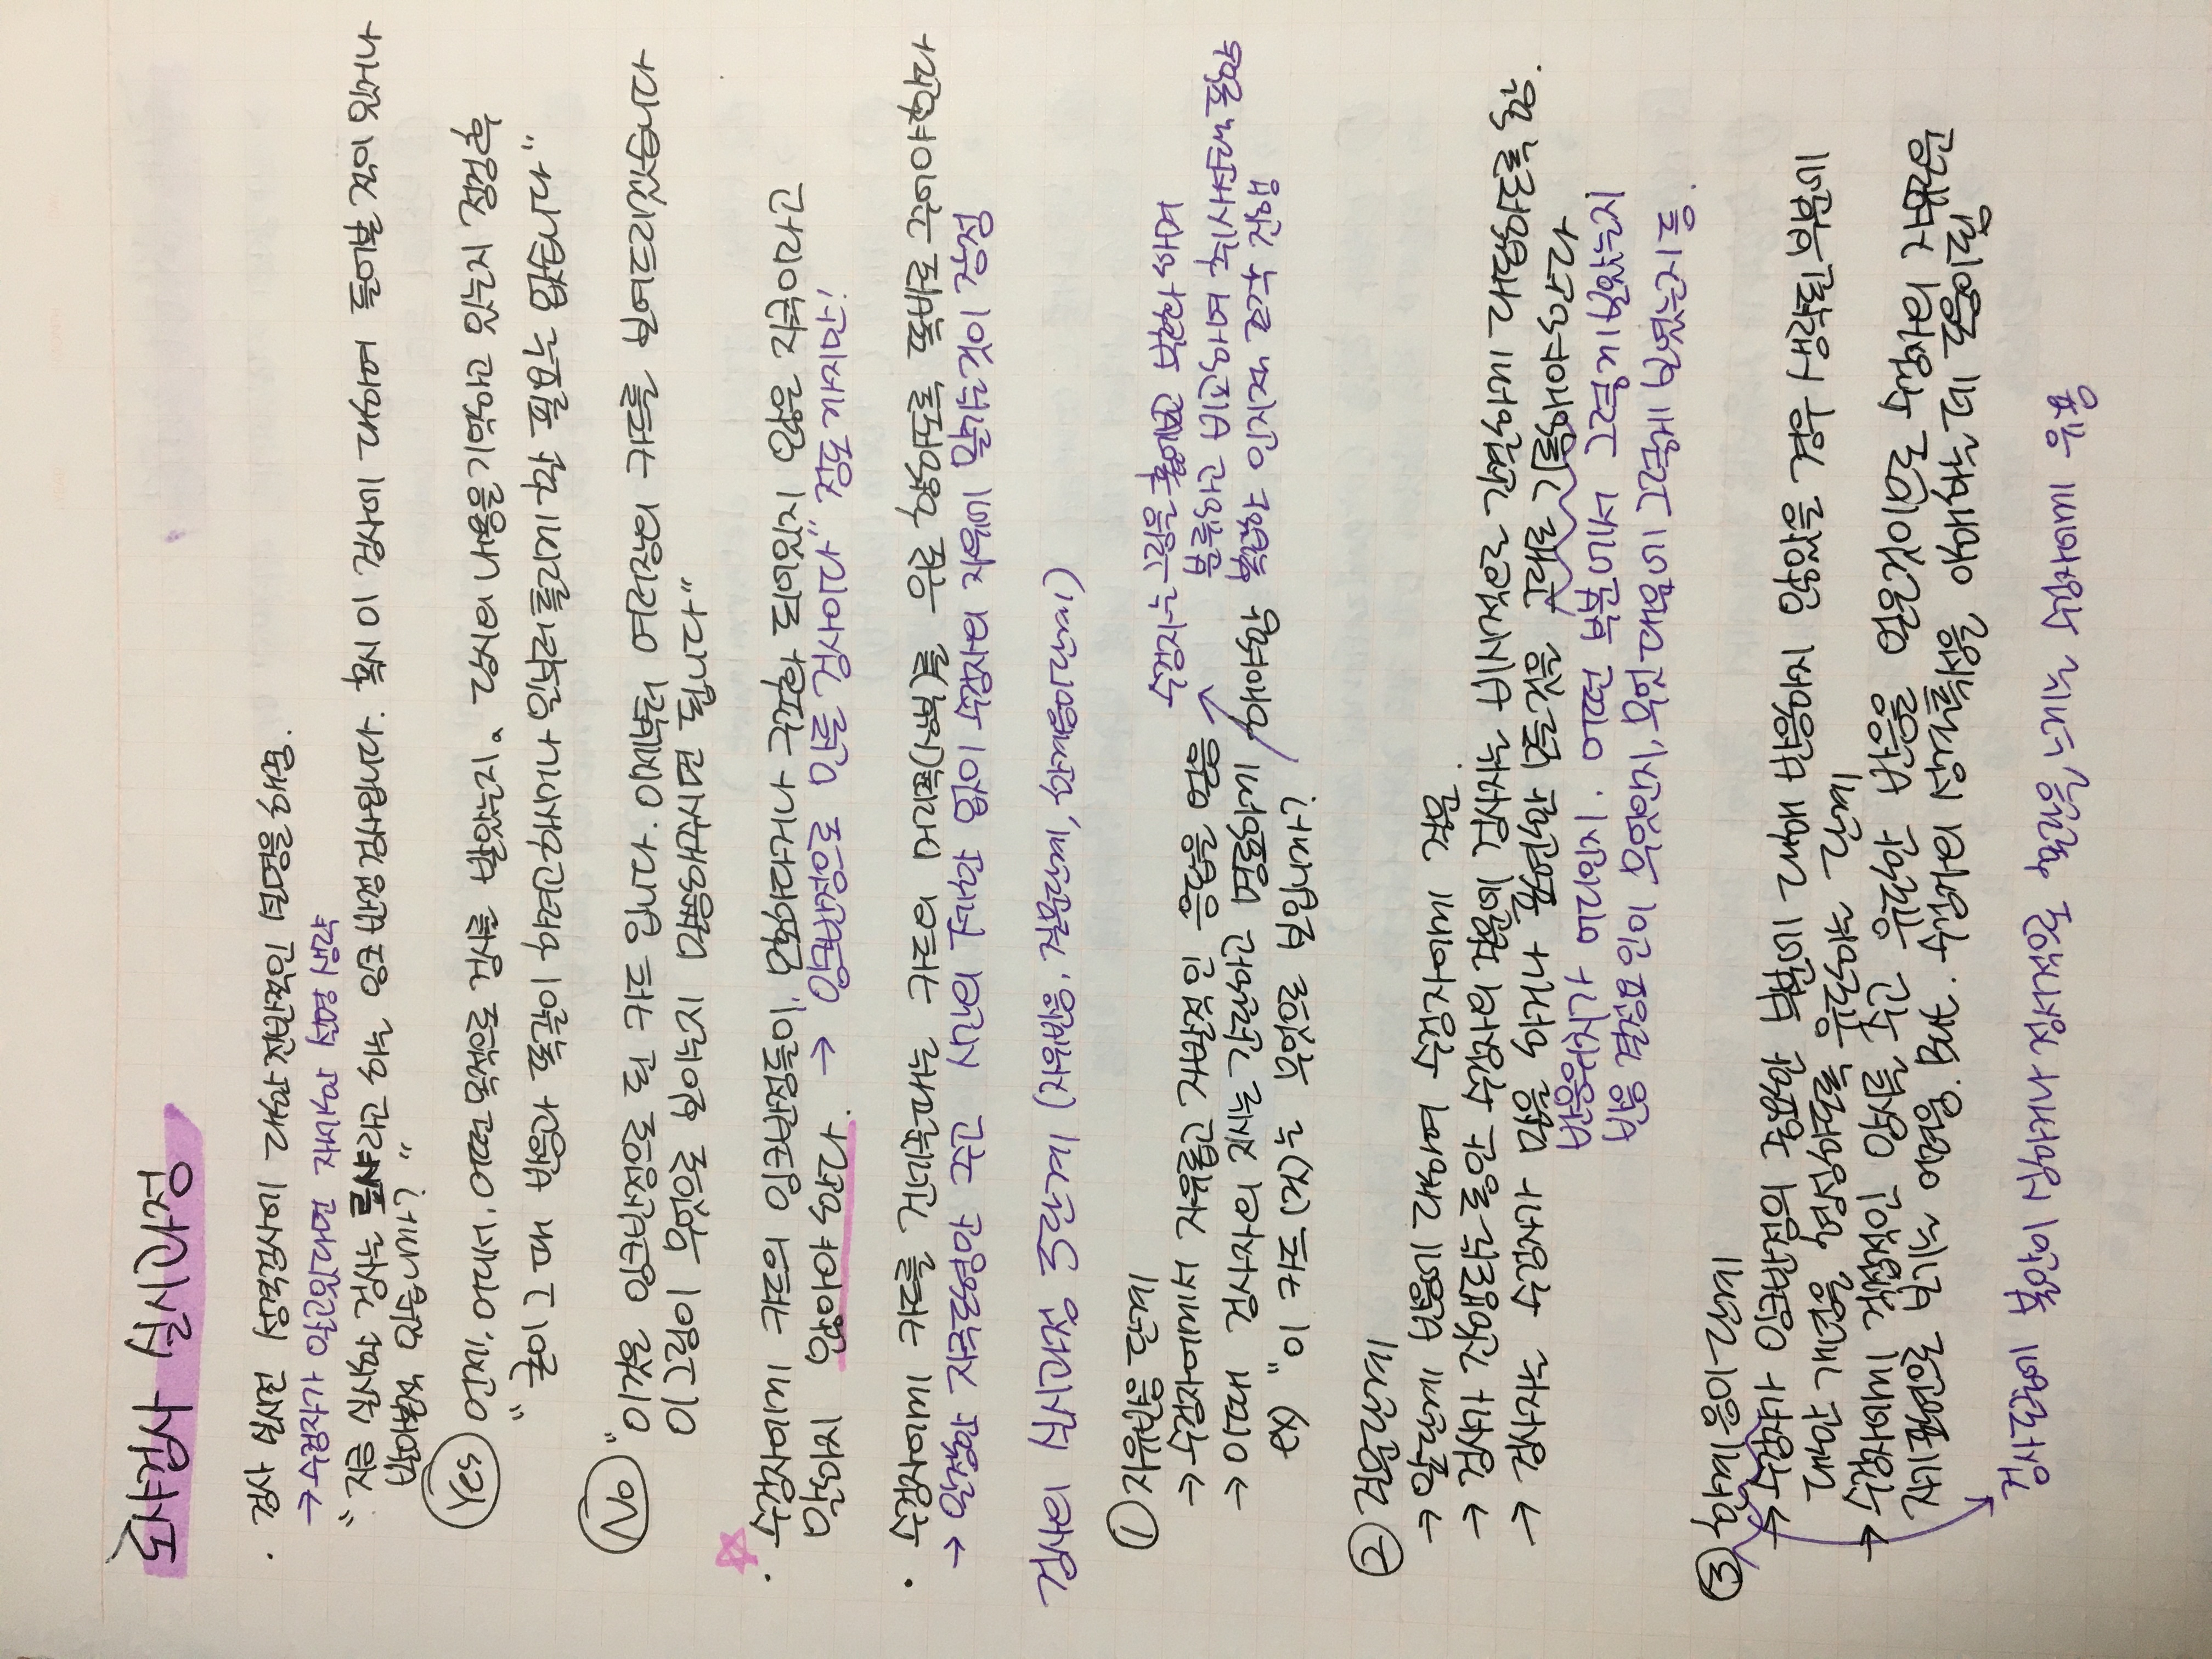 로샤검사 실시과정
· 검사 실시전 성격검사에 대한 전반적인 설명을 해줌.
→ 수검자가 알고있다면 자세한 설명 생략
" 지금 실시할 검사는 로샤라고 하는 잉크 반점 검사입니다. 혹시 이 검사에 대하여 들어본 적이 있거나
받아본적 있습니까? "
Yes 언제, 어디서, 어떤 목적으로 검사를 받았는지. 당시의 내용을 기억하고 있는지 점검후
" 굳이 그 때 반응과 똑같이 하려고하시거나 일부러 틀리게 할 필요는 없습니다 "
No " 이것은 잉크반점으로 된 카드 입니다. 이제부터 여러장의 카드를 보여드리겠습니다
이 그림이 무엇으로 보이는지 말씀해주시면 됩니다 "
· 수검자에게 카드의 잉크반점들이, 모호하다거나 구조화 되어있지 않은 자극이라고
말하지 않아야 한다. → 잉크반점으로 만든 검사이다" 정도 까지만!
· 수검자에게 카드를 건네줄때는 카드의 머리쪽(상부)를 위로 향하도록 똑바로 주어야 한다
→ 일정한 자극도형만 주고 시간의 제한 없이 수검자의 자유에 맡기는것이 장점
검사의 실시과정 3단계 (자유반응, 질문단계, 한계음미단계)
① 자유반응 단계
→ 수검자에게서 자유롭고 자발적인 응답을 얻음
→ 이때 검사자의 지시는 간단하고 명료하게 해야함
ex) "이 카드(것)는 무엇으로 보입니까?
수검자는 그림을 훑어보고 부호화 하며
분류하고 비교하며 취사선택 등의
복잡한 인지적 조작 진행
② 질문단계
→ 앞단계 반응에 대하여 수검자에게 질문.
→ 검사가 진행되는동안 수검자의 질문에 검사자는 비지시적으로 간결하게 대답하도록 함.
→ 검사자는 수검자가 말을 하거나 표현한 모든것을 그대로 기록해야한다
반응위치가 어디인지. 어떤 부분에서 그렇게 보았는지
반응 결정요인이 무엇인지, 무엇 때문에 그렇게 보였는지 등.
③ 한계 음미 단계
→ 수검자가 잉크반점의 중요한 부분에 대해 반응하지 않았을 경우 생략된 부분에
대한 개념을 형성하도록 유도하는 단계
→ 수검자에게 직접적인 암시를 주고 유도한 반응을 얻은것이므로 수검자의 자유로운
자기표현으로 보기는 어려움. But. 수검자의 성격특성을 이해하는 데 도움이됨
검사도중에 불안이 심하거나 정서적으로 혼란을 느끼는 수검자에게 유용